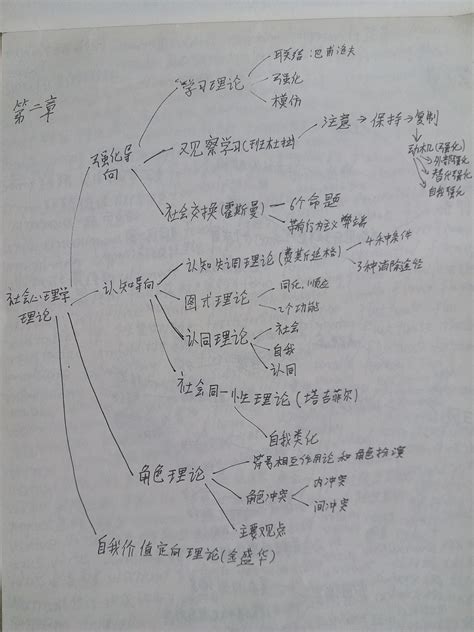 第二章
社会心理学
理论
强化导
向
学习理论
联结：巴甫洛夫
强化
模仿
观察学习(班杜拉)
注意→保持→复制
动机(强化)
外部强化
替代强化
自我强化
社会交换(霍斯曼)
6个命题
带有行为主义弊端
认知导向
认知失调理论(费斯廷格)
4条件
3种消除途径
图式理论
同化、顺应
2个功能
认同理论
社会
自我
认同
社会同一性理论(塔吉菲尔)
自我类化
角色理论
符号相互作用论和角色扮演
角色冲突
内冲突
间冲突
主要观点
自我价值定向理论(金盛华)